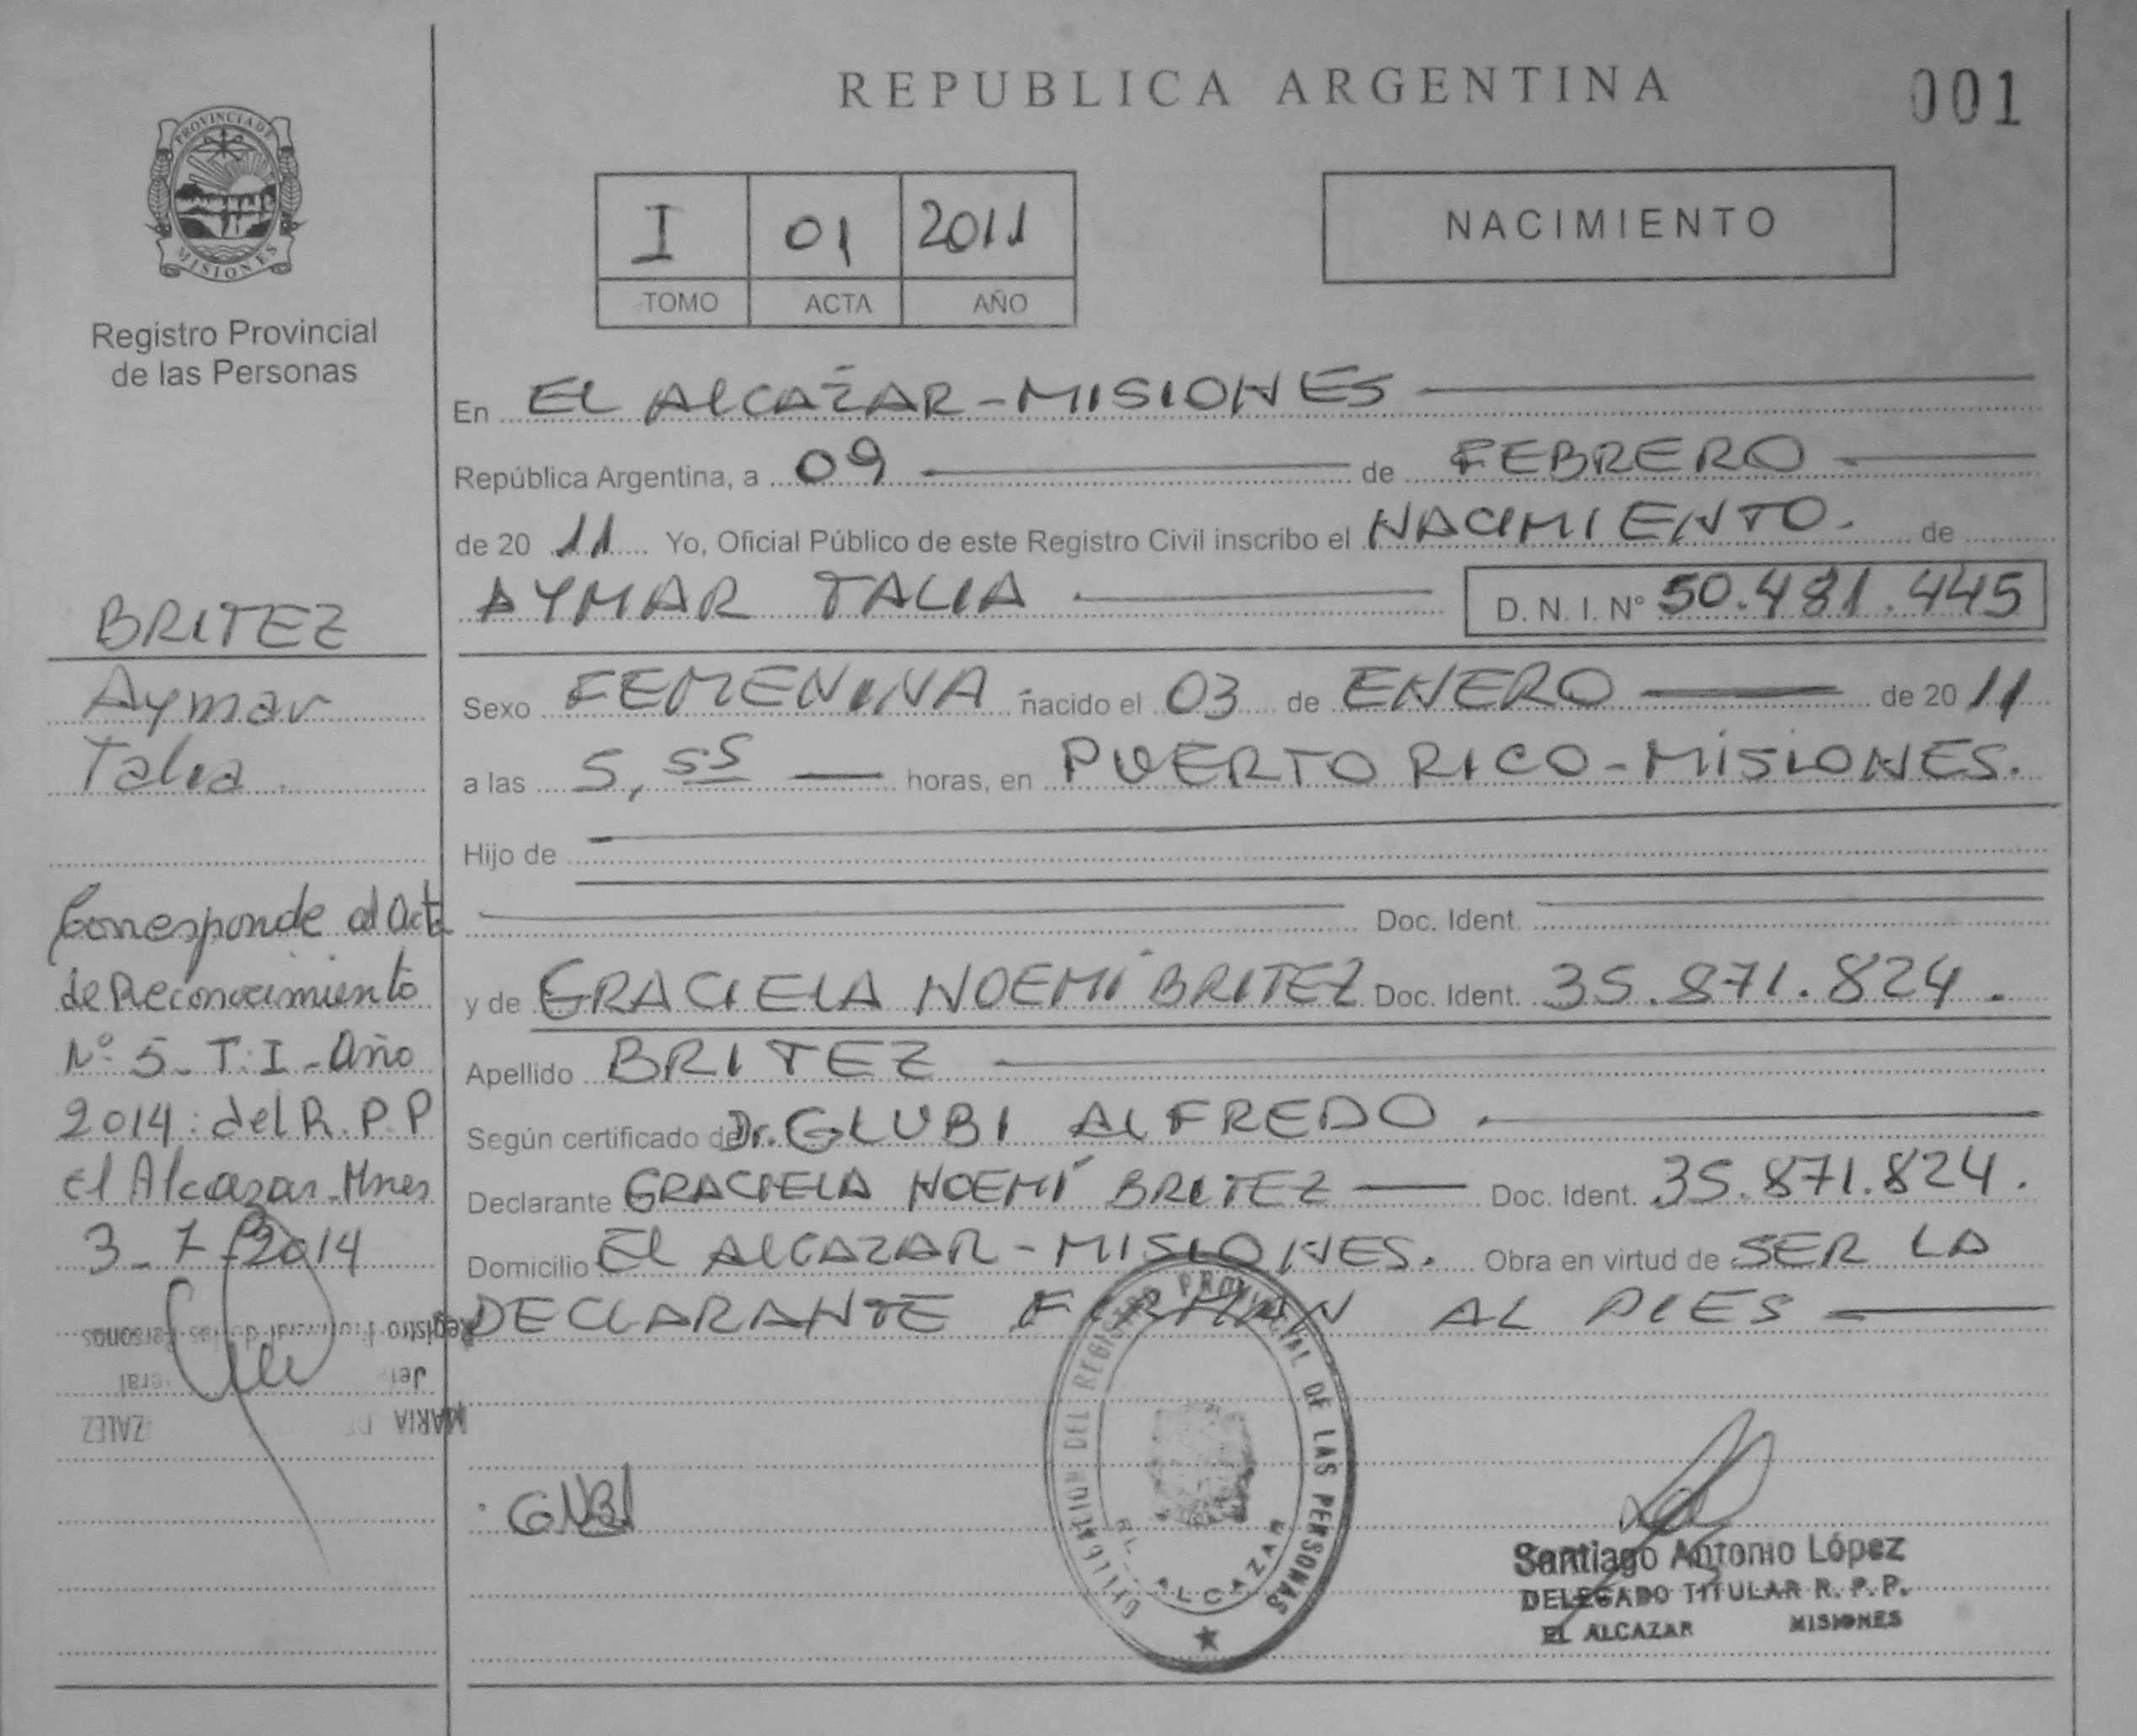 REPUBLICA ARGENTINA
001
PROVINCIA DE
MISIONES
Registro Provincial
de las Personas
I 01 2011
TOMO ACTA AÑO
NACIMIENTO
En EL ALCAZAR - MISIONES
República Argentina, a 09 de FEBRERO
de 20 11 Yo, Oficial Público de este Registro Civil inscribo el NACIMIENTO. de
AYMAR TALIA D. N. I. Nº 50.481.445
Sexo FEMENINA nacido el 03 de ENERO de 20 11
a las 5,55 horas, en PUERTO RICO - MISIONES.
Hijo de
Doc. Ident.
y de GRACIELA NOEMÍ BRITEZ Doc. Ident. 35.871.824.
Apellido BRITEZ
Según certificado de Dr. GLUBI ALFREDO.
Declarante GRACIELA NOEMÍ BRITEZ Doc. Ident. 35.871.824.
Domicilio EL ALCAZAR - MISIONES. Obra en virtud de SER LA
DECLARANTE FIRMAN AL PIES
BRITEZ
Aymar
Talia.
Corresponde al Acta
de Reconocimiento
Nº 5 - T. I - Año
2014 : del R. P. P
El Alcazar - Mnes
3 - 7 - 2014
Registro Provincial de las Personas
MARIA
GNB
REGISTRO PROVINCIAL DE LAS PERSONAS
EL ALCAZAR
Santiago Antonio López
DELEGADO TITULAR R. P. P.
EL ALCAZAR MISIONES